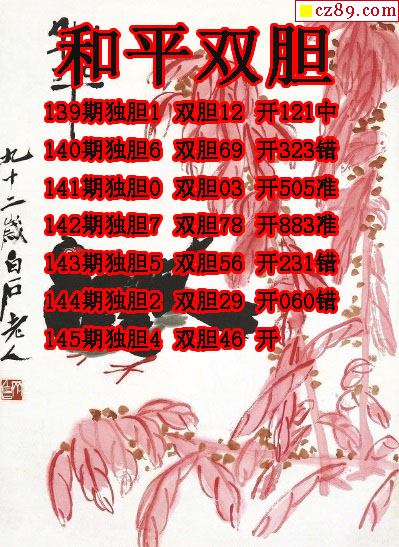 cz89.com
和平双胆
139期独胆1 双胆12 开121中
140期独胆6 双胆69 开323错
141期独胆0 双胆03 开505准
142期独胆7 双胆78 开883准
143期独胆5 双胆56 开231错
144期独胆2 双胆29 开060错
145期独胆4 双胆46 开
九十二岁白石老人